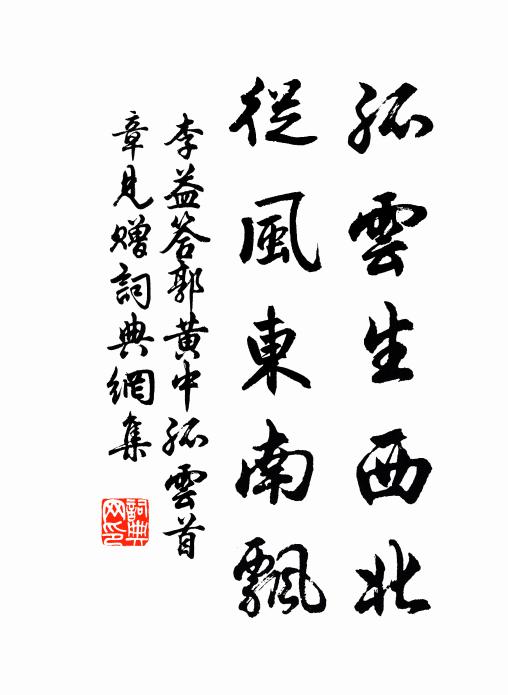 孤雲生西北
從風東南飄
李益答郭黄中孤雲首
章見贈詞典網集
詞典
网印